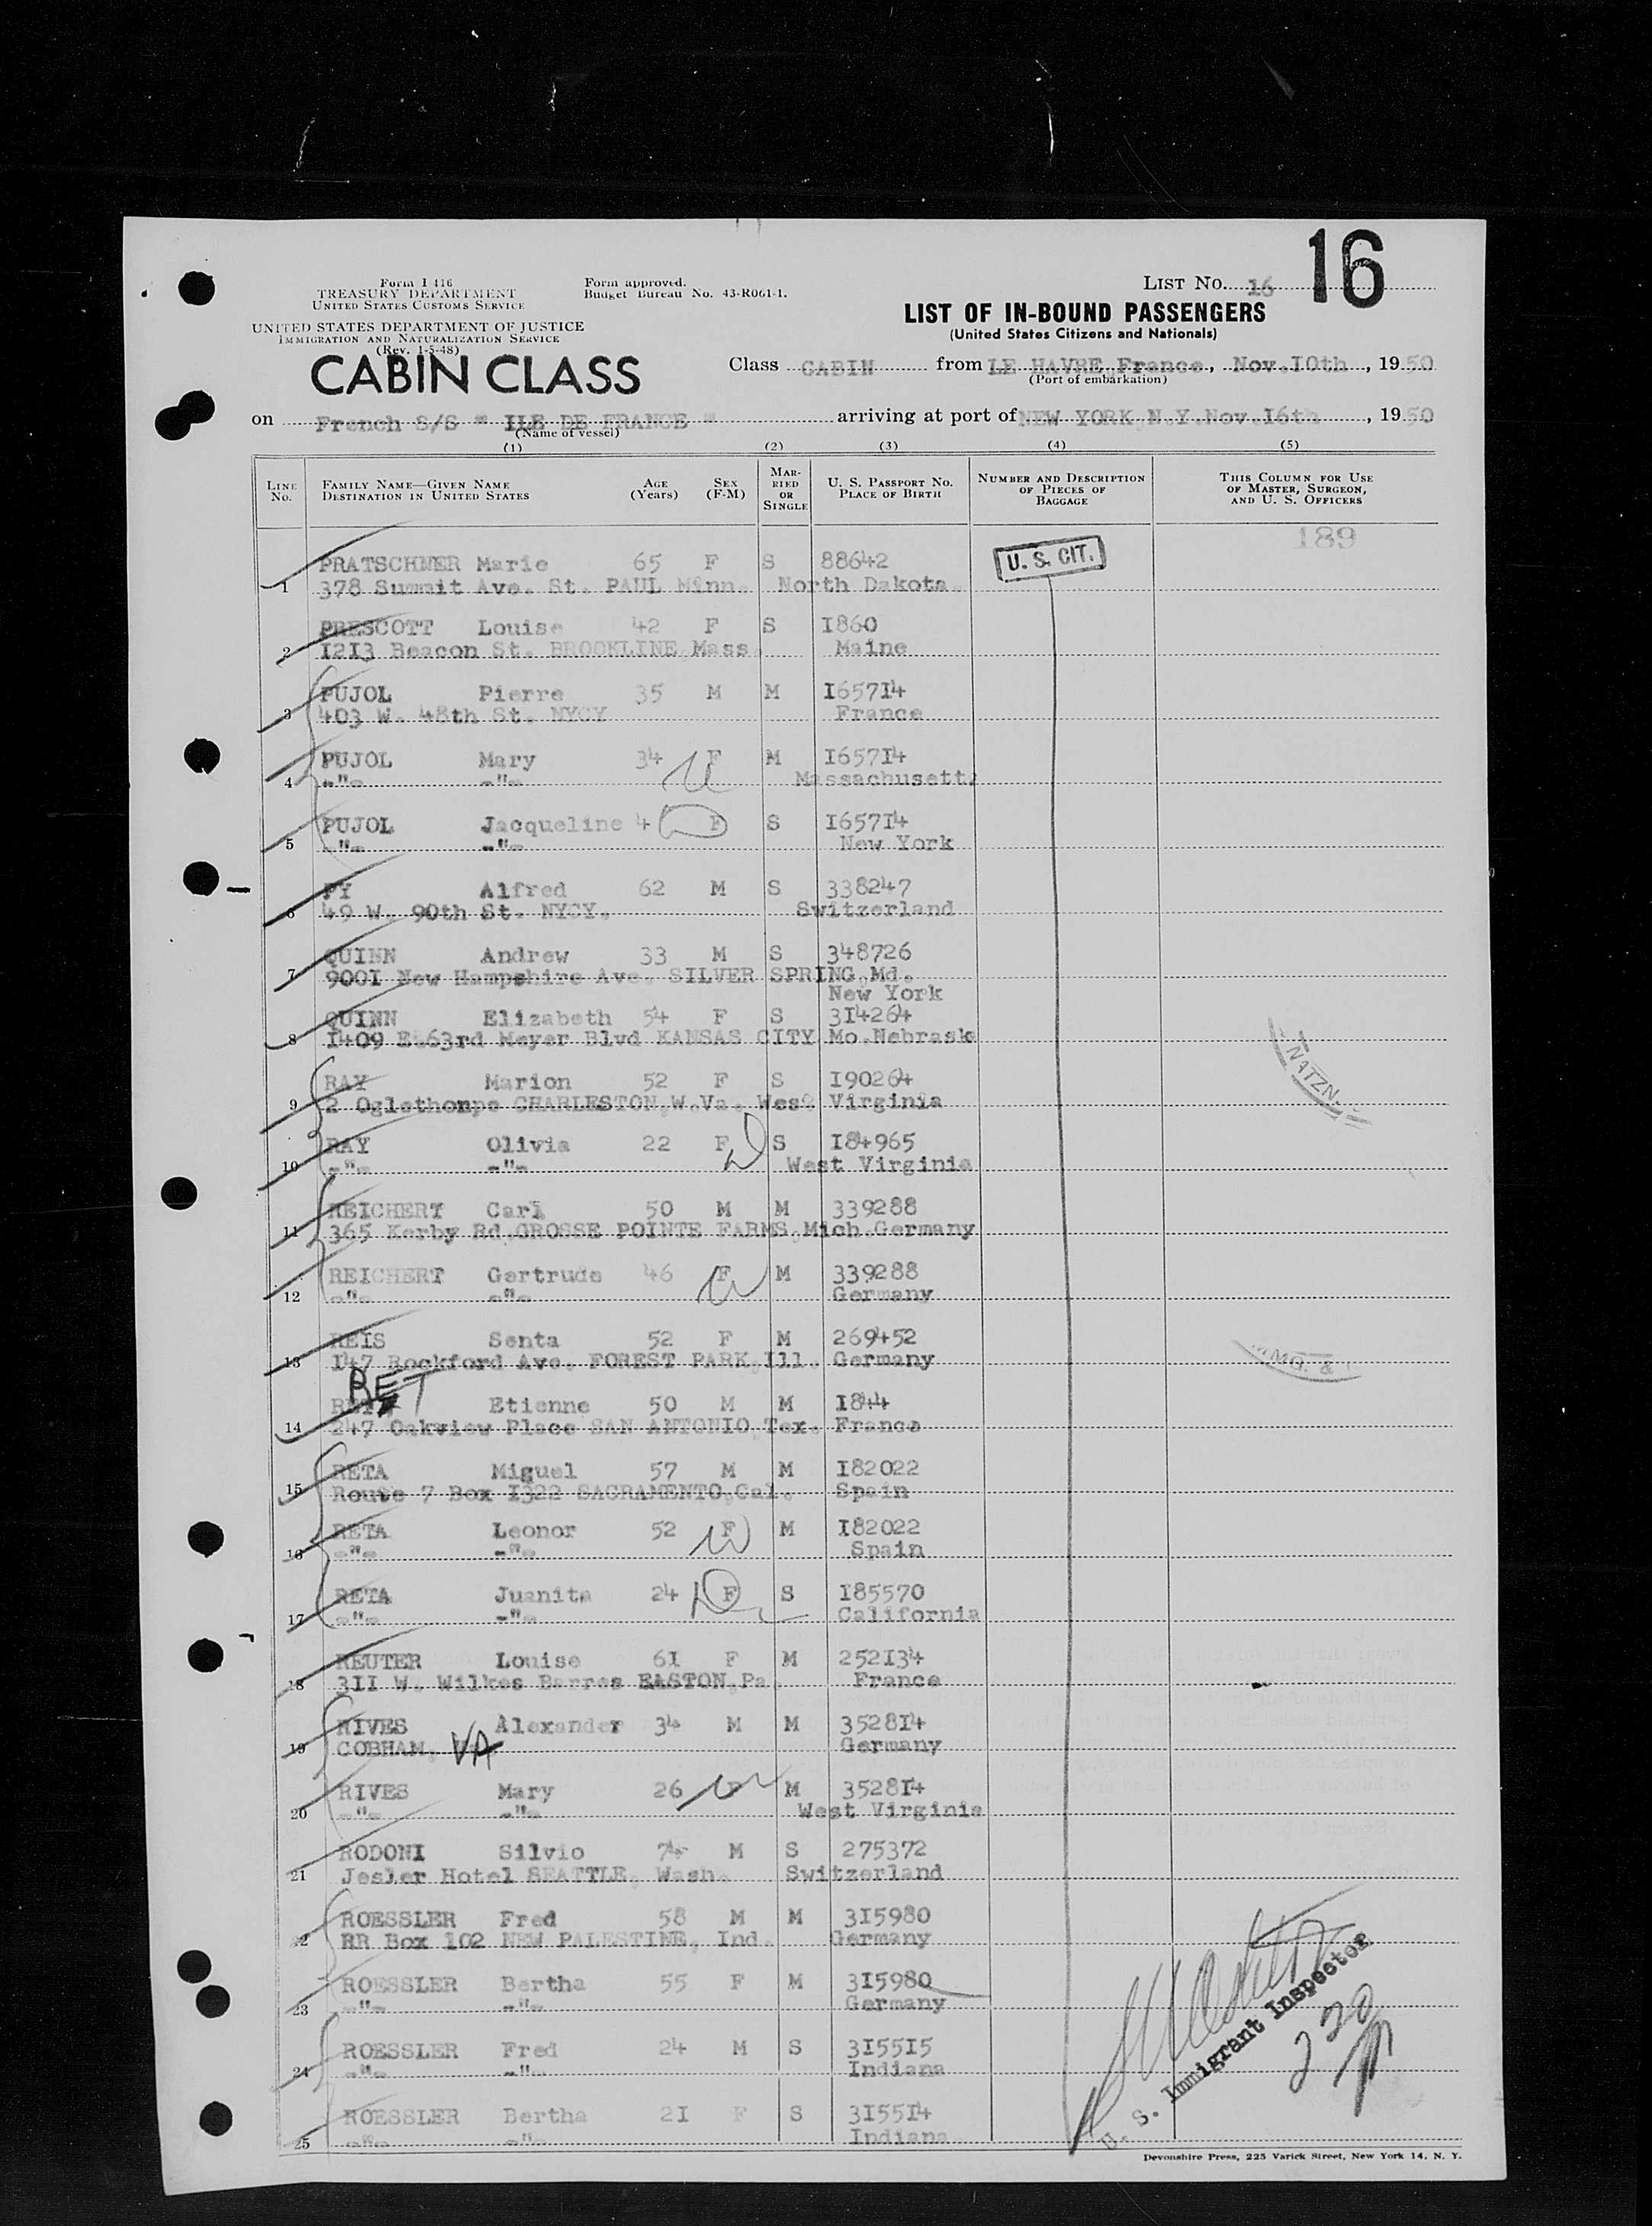 Form I 416
TREASURY DEPARTMENT
UNITED STATES CUSTOMS SERVICE
UNITED STATES DEPARTMENT OF JUSTICE
IMMIGRATION AND NATURALIZATION SERVICE
(Rev. 1-5-48)
Form approved.
Budget Bureau No. 43-R061-1.
LIST NO. 16
16
LIST OF IN-BOUND PASSENGERS
(United States Citizens and Nationals)
CABIN CLASS
Class CABIN from LE HAVRE, France, Nov.I0th, 1950
(Port of embarkation)
on French S/S " ILE DE FRANCE " arriving at port of NEW YORK, N.Y. Nov.I6th, 1950
(Name of vessel)
(1) (2) (3) (4) (5)
LINE No. FAMILY NAME—GIVEN NAME DESTINATION IN UNITED STATES AGE (Years) SEX (F-M) MARRIED OR SINGLE U. S. PASSPORT NO. PLACE OF BIRTH NUMBER AND DESCRIPTION OF PIECES OF BAGGAGE THIS COLUMN FOR USE OF MASTER, SURGEON, AND U. S. OFFICERS
189
PRATSCHNER Marie 65 F S 88642 U. S. CIT.
1 378 Summit Ave. St. PAUL Minn. North Dakota.
PRESCOTT Louise 42 F S I860
2 I2I3 Beacon St. BROOKLINE Mass. Maine
PUJOL Pierre 35 M M I657I4
3 403 W. 48th St. NYCY France
PUJOL Mary 34 F M I657I4
4 -"- -"- Massachusett.
PUJOL Jacqueline 4 F S I657I4
5 -"- -"- New York
PY Alfred 62 M S 338247
6 49 W. 90th St. NYCY. Switzerland
QUINN Andrew 33 M S 348726
7 900I New Hampshire Ave. SILVER SPRING, Md.
New York
QUINN Elizabeth 54 F S 3I4264
8 I409 E.63rd Meyer Blvd KANSAS CITY Mo.Nebrask
RAY Marion 52 F S I90264
9 2 Oglethorpe CHARLESTON, W.Va. West Virginia
NATZN.
RAY Olivia 22 F S I84965
10 -"- -"- West Virginia
REICHERT Carl 50 M M 339288
11 365 Kerby Rd.GROSSE POINTE FARMS, Mich.Germany
REICHERT Gertrude 46 F M 339288
12 -"- -"- Germany
REIS Senta 52 F M 269452
13 I47 Rockford Ave. FOREST PARK, Ill. Germany
MG. &
RET
Etienne 50 M M I844
14 247 Oakview Place SAN ANTONIO, Tex. France
RETA Miguel 57 M M I82022
15 Route 7 Box I322 SACRAMENTO, Cal. Spain
RETA Leonor 52 F M I82022
16 -"- -"- Spain
RETA Juanita 24 F S I85570
17 -"- -"- California
REUTER Louise 6I F M 252I34
18 3II W. Wilkes Barres EASTON, Pa. France
RIVES Alexander 34 M M 3528I4
19 COBHAM, VA Germany
RIVES Mary 26 F M 3528I4
20 -"- -"- West Virginia
RODONI Silvio 74 M S 275372
21 Jesler Hotel SEATTLE, Wash. Switzerland
ROESSLER Fred 58 M M 3I5980
22 RR Box I02 NEW PALESTINE, Ind. Germany
ROESSLER Bertha 55 F M 3I5980
23 -"- -"- Germany
ROESSLER Fred 24 M S 3I55I5
24 -"- -"- Indiana
ROESSLER Bertha 2I F S 3I55I4
25 -"- -"- Indiana
U. S. Immigrant Inspector
230
Devonshire Press, 225 Varick Street, New York 14, N. Y.